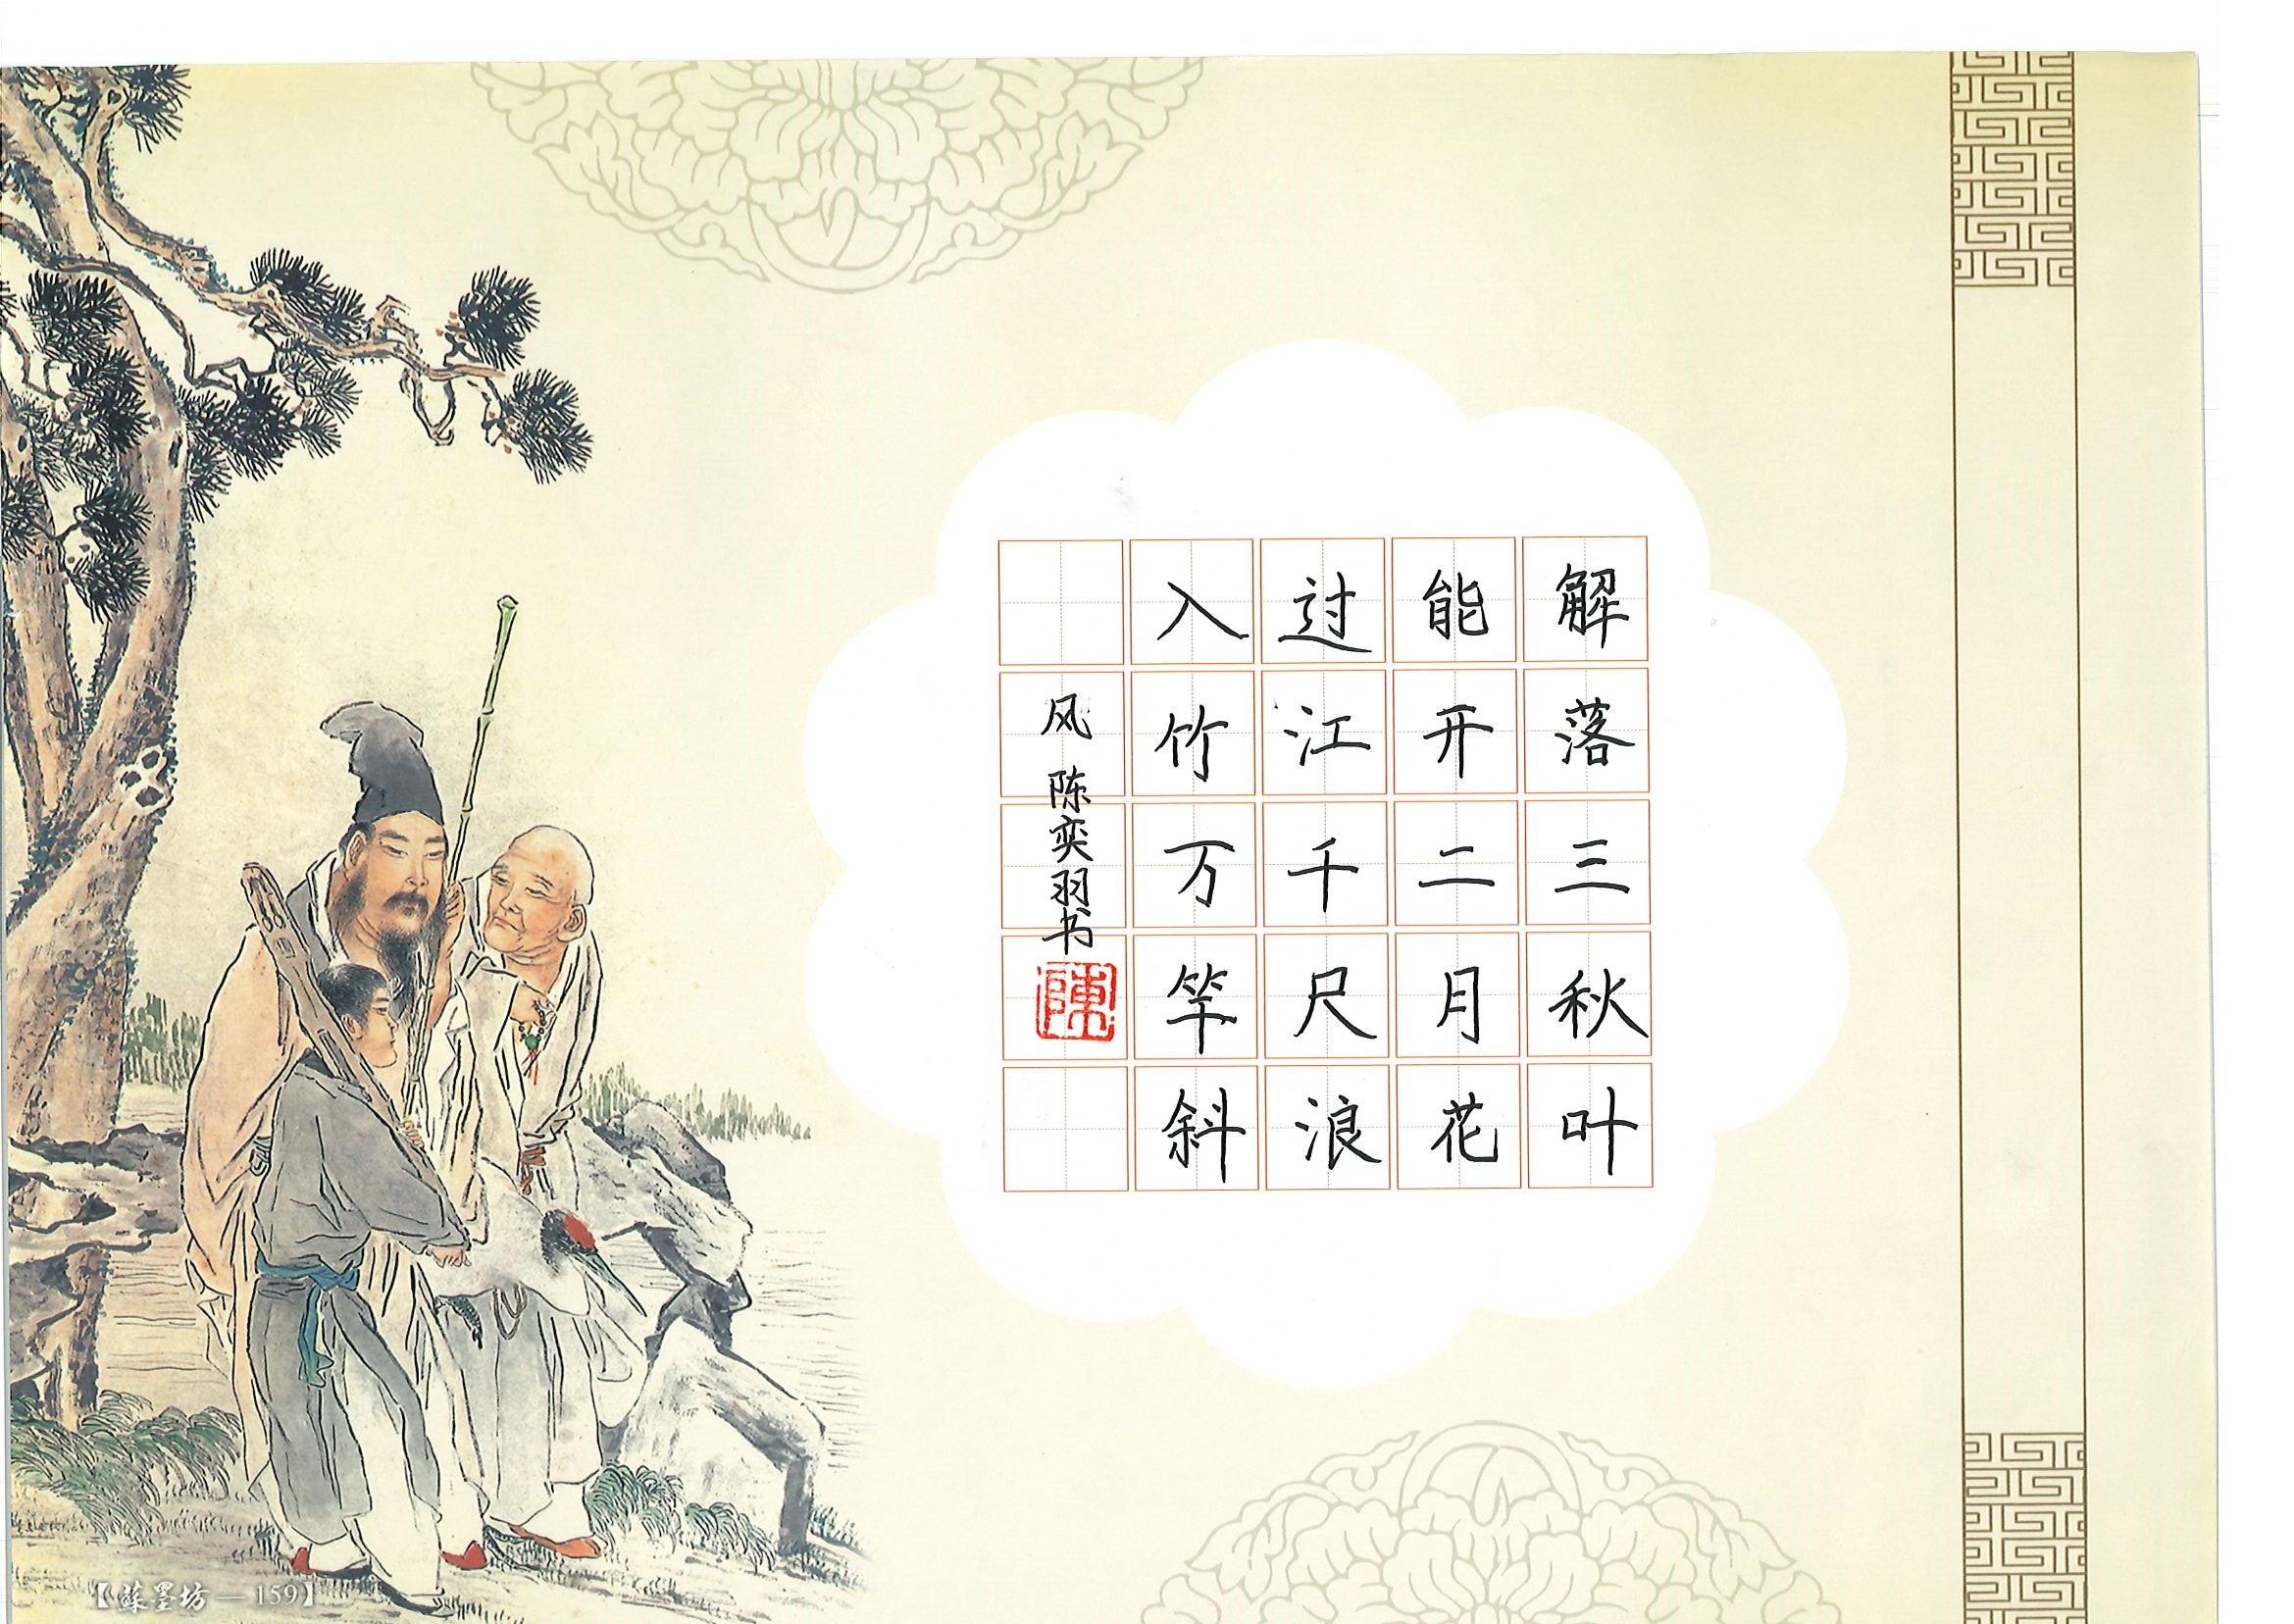 解落三秋叶
能开二月花
过江千尺浪
入竹万竿斜
风 陈奕羽书
陳
【蘇墨坊—159】